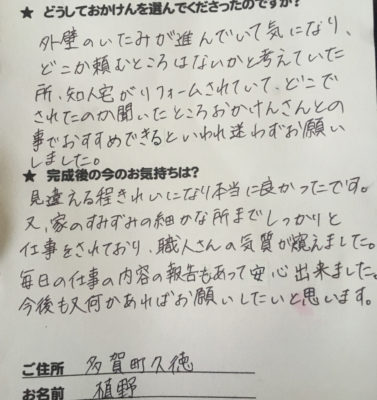 ★ どうしておかけんを選んでくださったのですか?
外壁のいたみが進んでいて気になり、
どこか頼むところはないかと考えていた
所、知人宅がリフォームされていて、どこで
されたのか聞いたところおかけんさんとの
事でおすすめできるといわれ迷わずお願い
しました。
★ 完成後の今のお気持ちは?
見違える程きれいになり本当に良かったです。
又、家のすみずみの細かな所までしっかりと
仕事をされており、職人さんの気質が窺えました。
毎日の仕事の内容の報告もあって安心出来ました。
今後も又何かあればお願いしたいと思います。
ご住所 多賀町久徳
お名前 植野